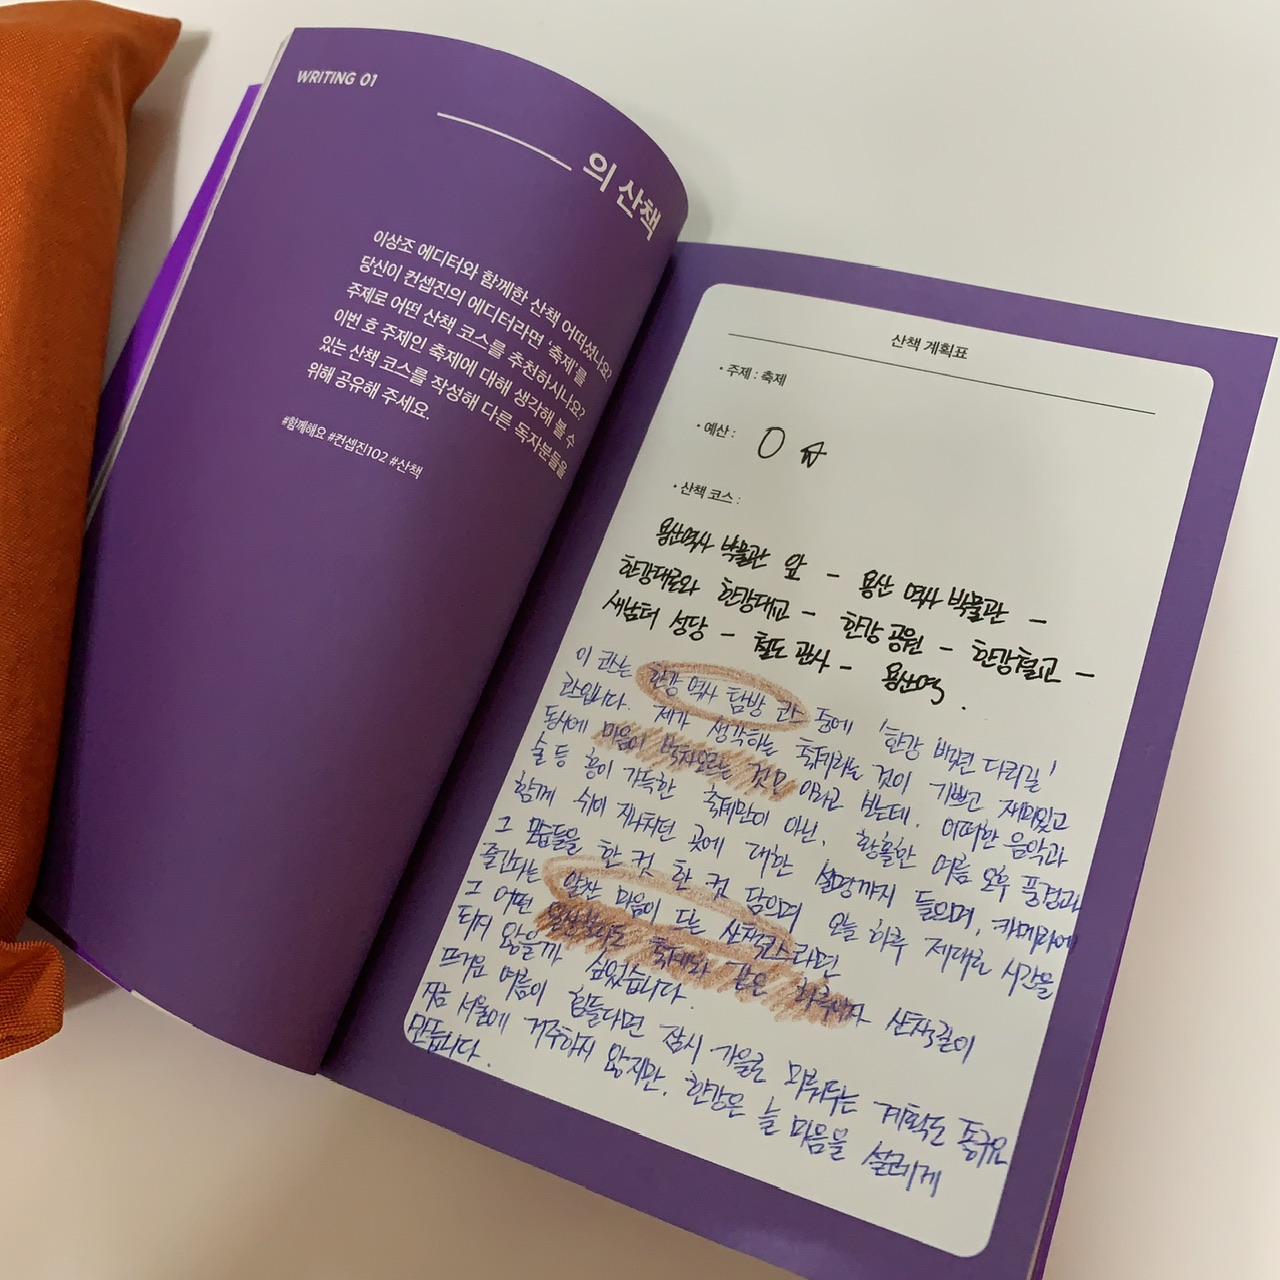 WRITING 01
의 산책
이상조 에디터와 함께한 산책 어떠셨나요?
당신이 컨셉진의 에디터라면 '축제'를
주제로 어떤 산책 코스를 추천하시나요?
이번 호 주제인 축제에 대해 생각해 볼 수
있는 산책 코스를 작성해 다른 독자분들을
위해 공유해 주세요.
#함께해요 #컨셉진102 #산책
산책 계획표
• 주제 : 축제
• 예산 : 0 원
• 산책 코스 :
용산역사 박물관 앞 - 용산 역사 박물관 -
한강대로와 한강대교 - 한강 공원 - 한강철교 -
새남터 성당 - 철도 관사 - 용산역.
이 코스는 한강 역사 탐방 코스 중에 '한강 변 다리길'
코스입니다. 제가 생각하는 축제라는 것이 기쁘고 재미있고
동시에 마음이 벅차오르는 것 이라고 보는데. 어떠한 음악과
술 등 흥이 가득한 축제만이 아닌, 황홀한 여름 오후 풍경과
함께 쉬이 지나치던 곳에 대한 설명까지 들으며, 카메라에
그 모습들을 한 컷 한 컷 담으며 오늘 하루 제대로 시간을
즐긴다는 알찬 마음이 드는 산책코스라면
그 어떤 축제와 같은 하루이자 산책길이
되지 않을까 싶었습니다.
뜨거운 여름이 힘들다면 잠시 가을로 미뤄두는 계획도 좋구요
지금 서울에 거주하지 않지만, 한강은 늘 마음을 설레게
만듭니다.